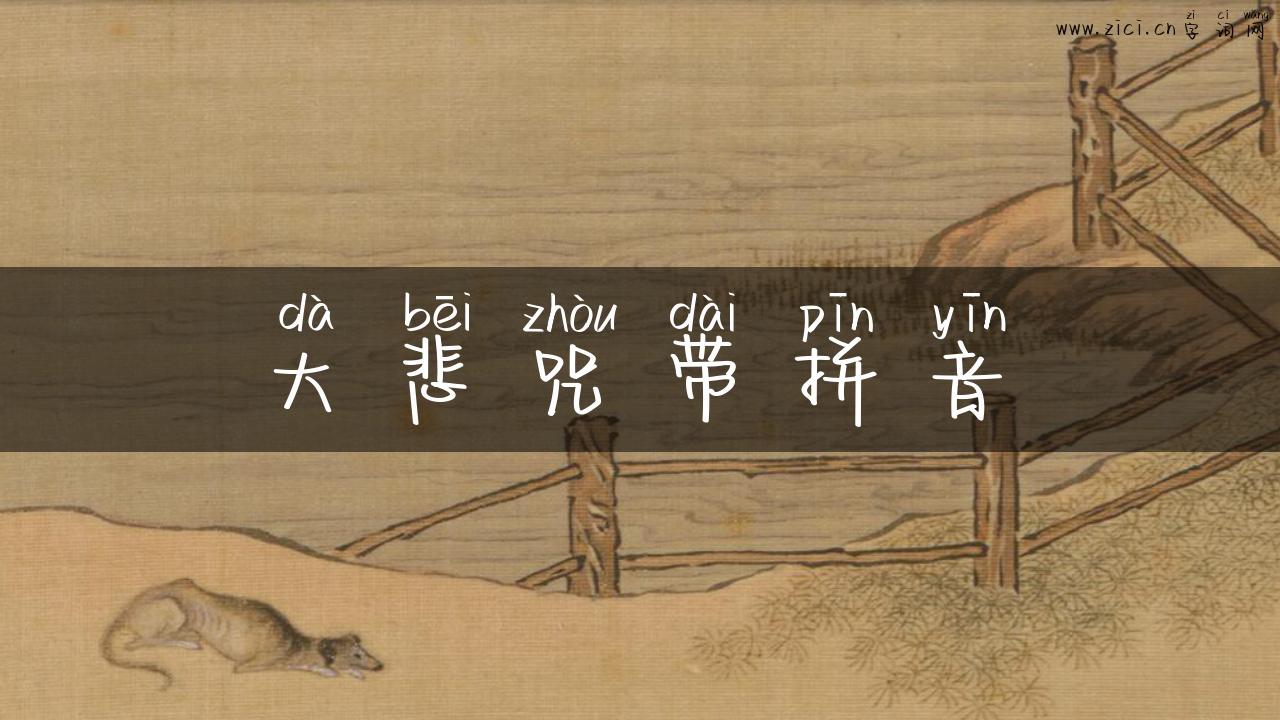 zì cí wǎng
www.zici.cn 字词网
dà bēi zhòu dài pīn yīn
大悲咒带拼音